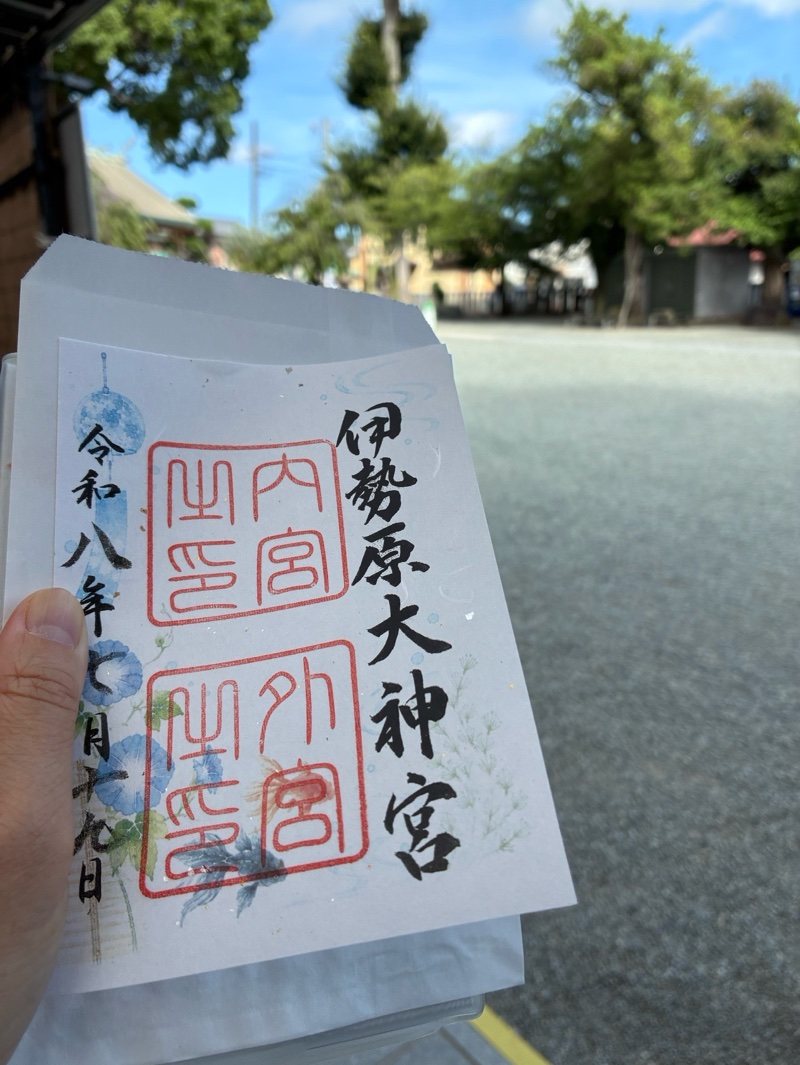 伊勢原大神宮
内宮
之印
外宮
之印
令和八年七月十九日